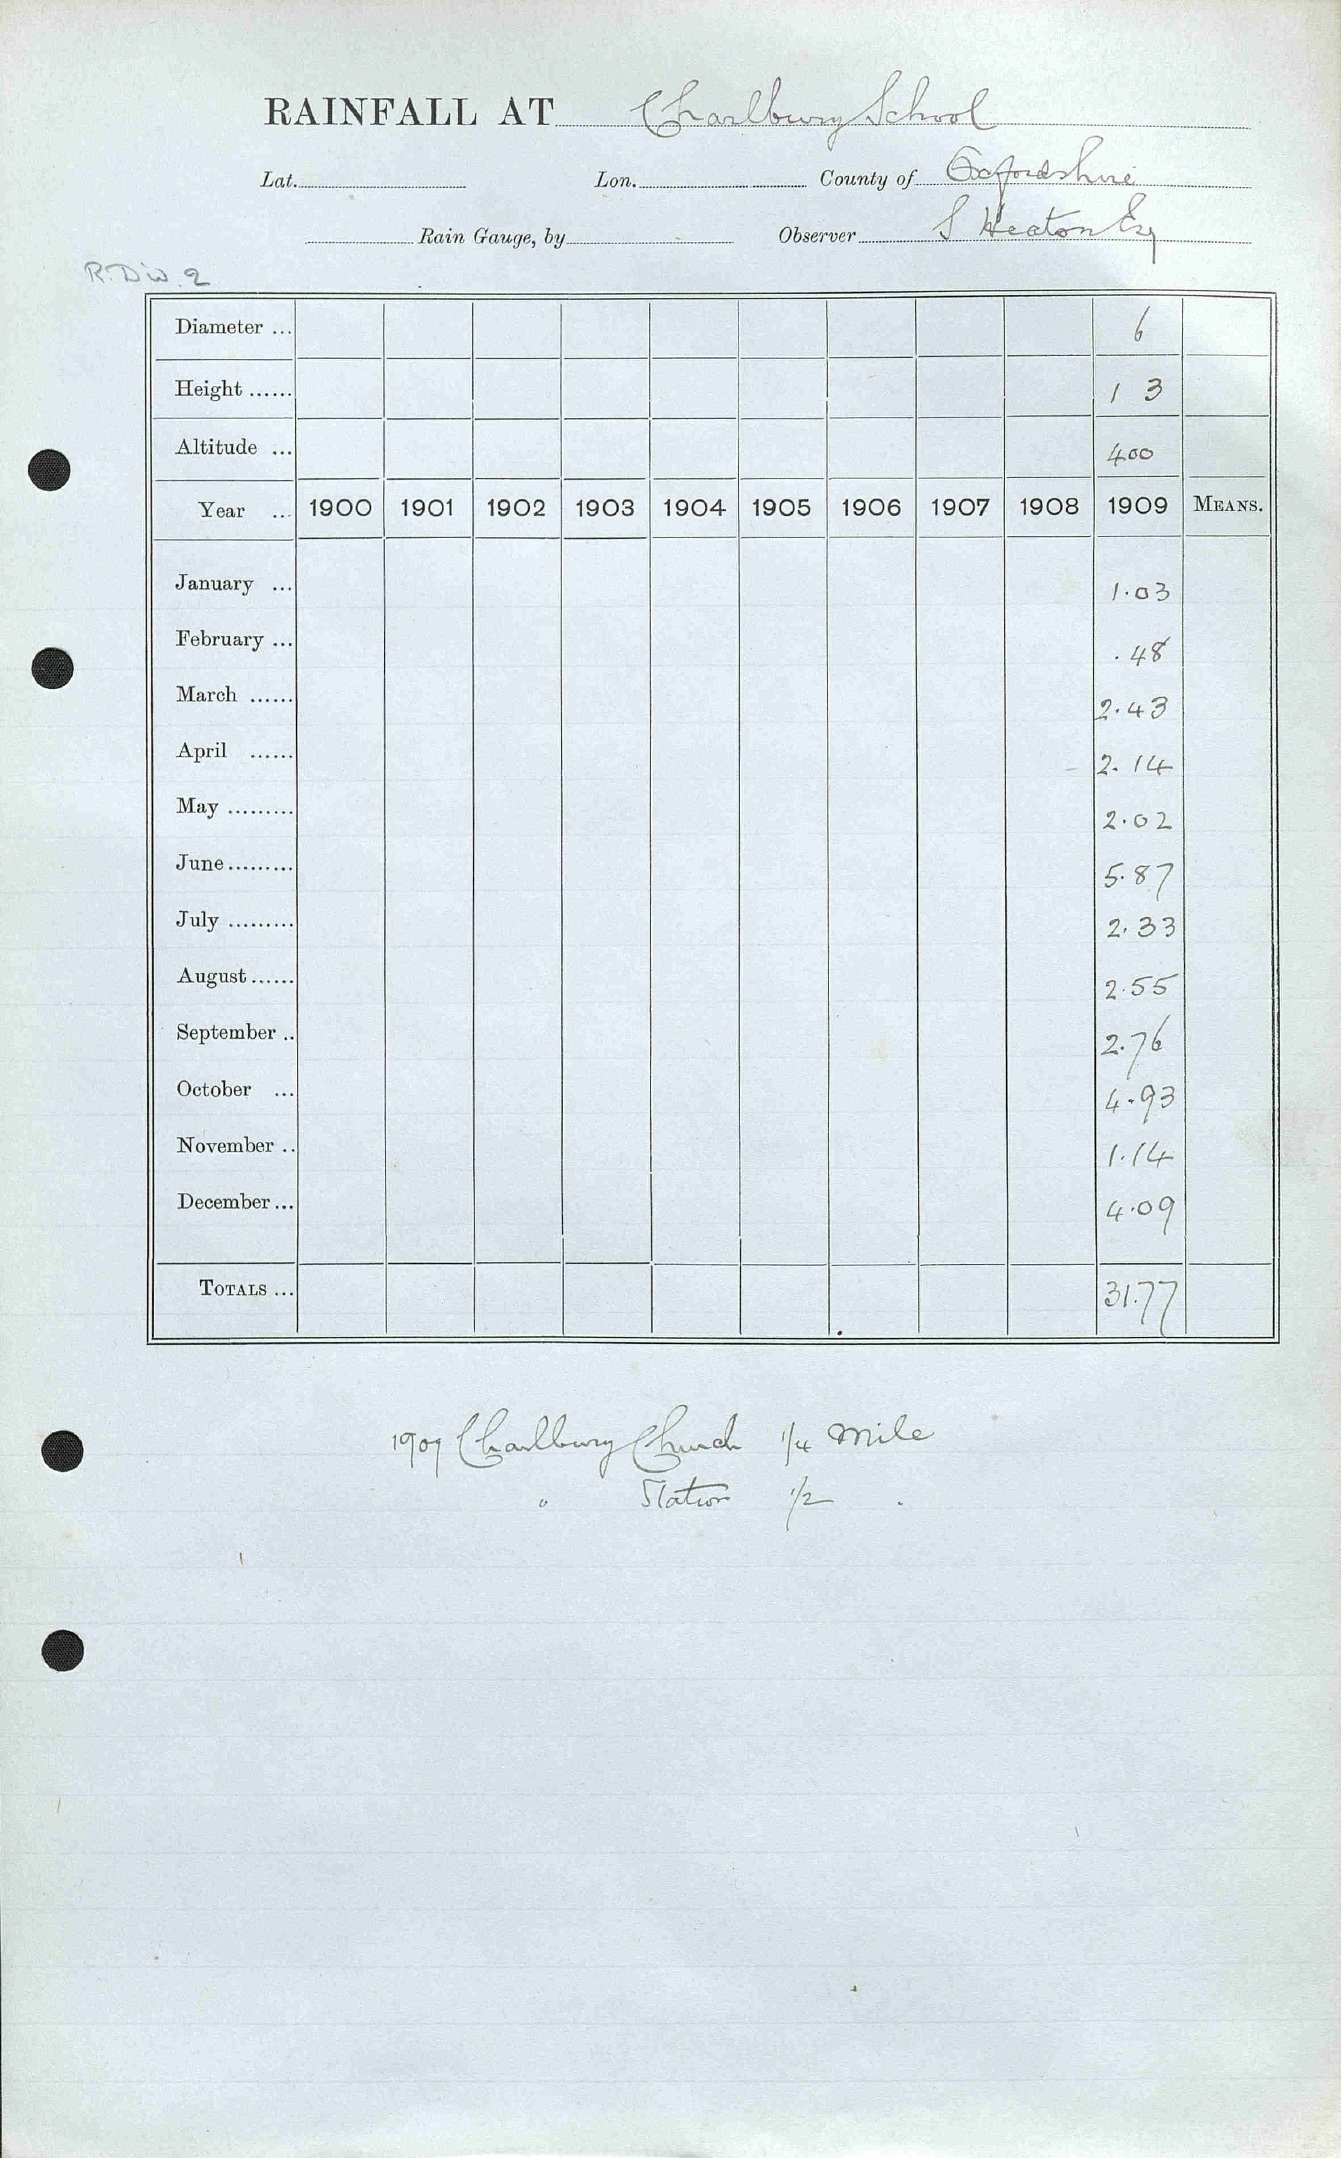 RAINFALL AT Charlbury School
Lat. Lon. County of Oxfordshire
Rain Gauge, by Observer S Heaton Esq
R. Div. 2
Diameter ... 6
Height ...... 1 3
Altitude ... 400
Year ... 1900 1901 1902 1903 1904 1905 1906 1907 1908 1909 MEANS.
January ... 1.03
February ... .48
March ...... 2.43
April ...... 2.14
May ......... 2.02
June ......... 5.87
July ......... 2.33
August ...... 2.55
September .. 2.76
October ... 4.93
November .. 1.14
December ... 4.09
TOTALS ... 31.77
1909 Charlbury Church 1/4 mile
" Station 1/2 "